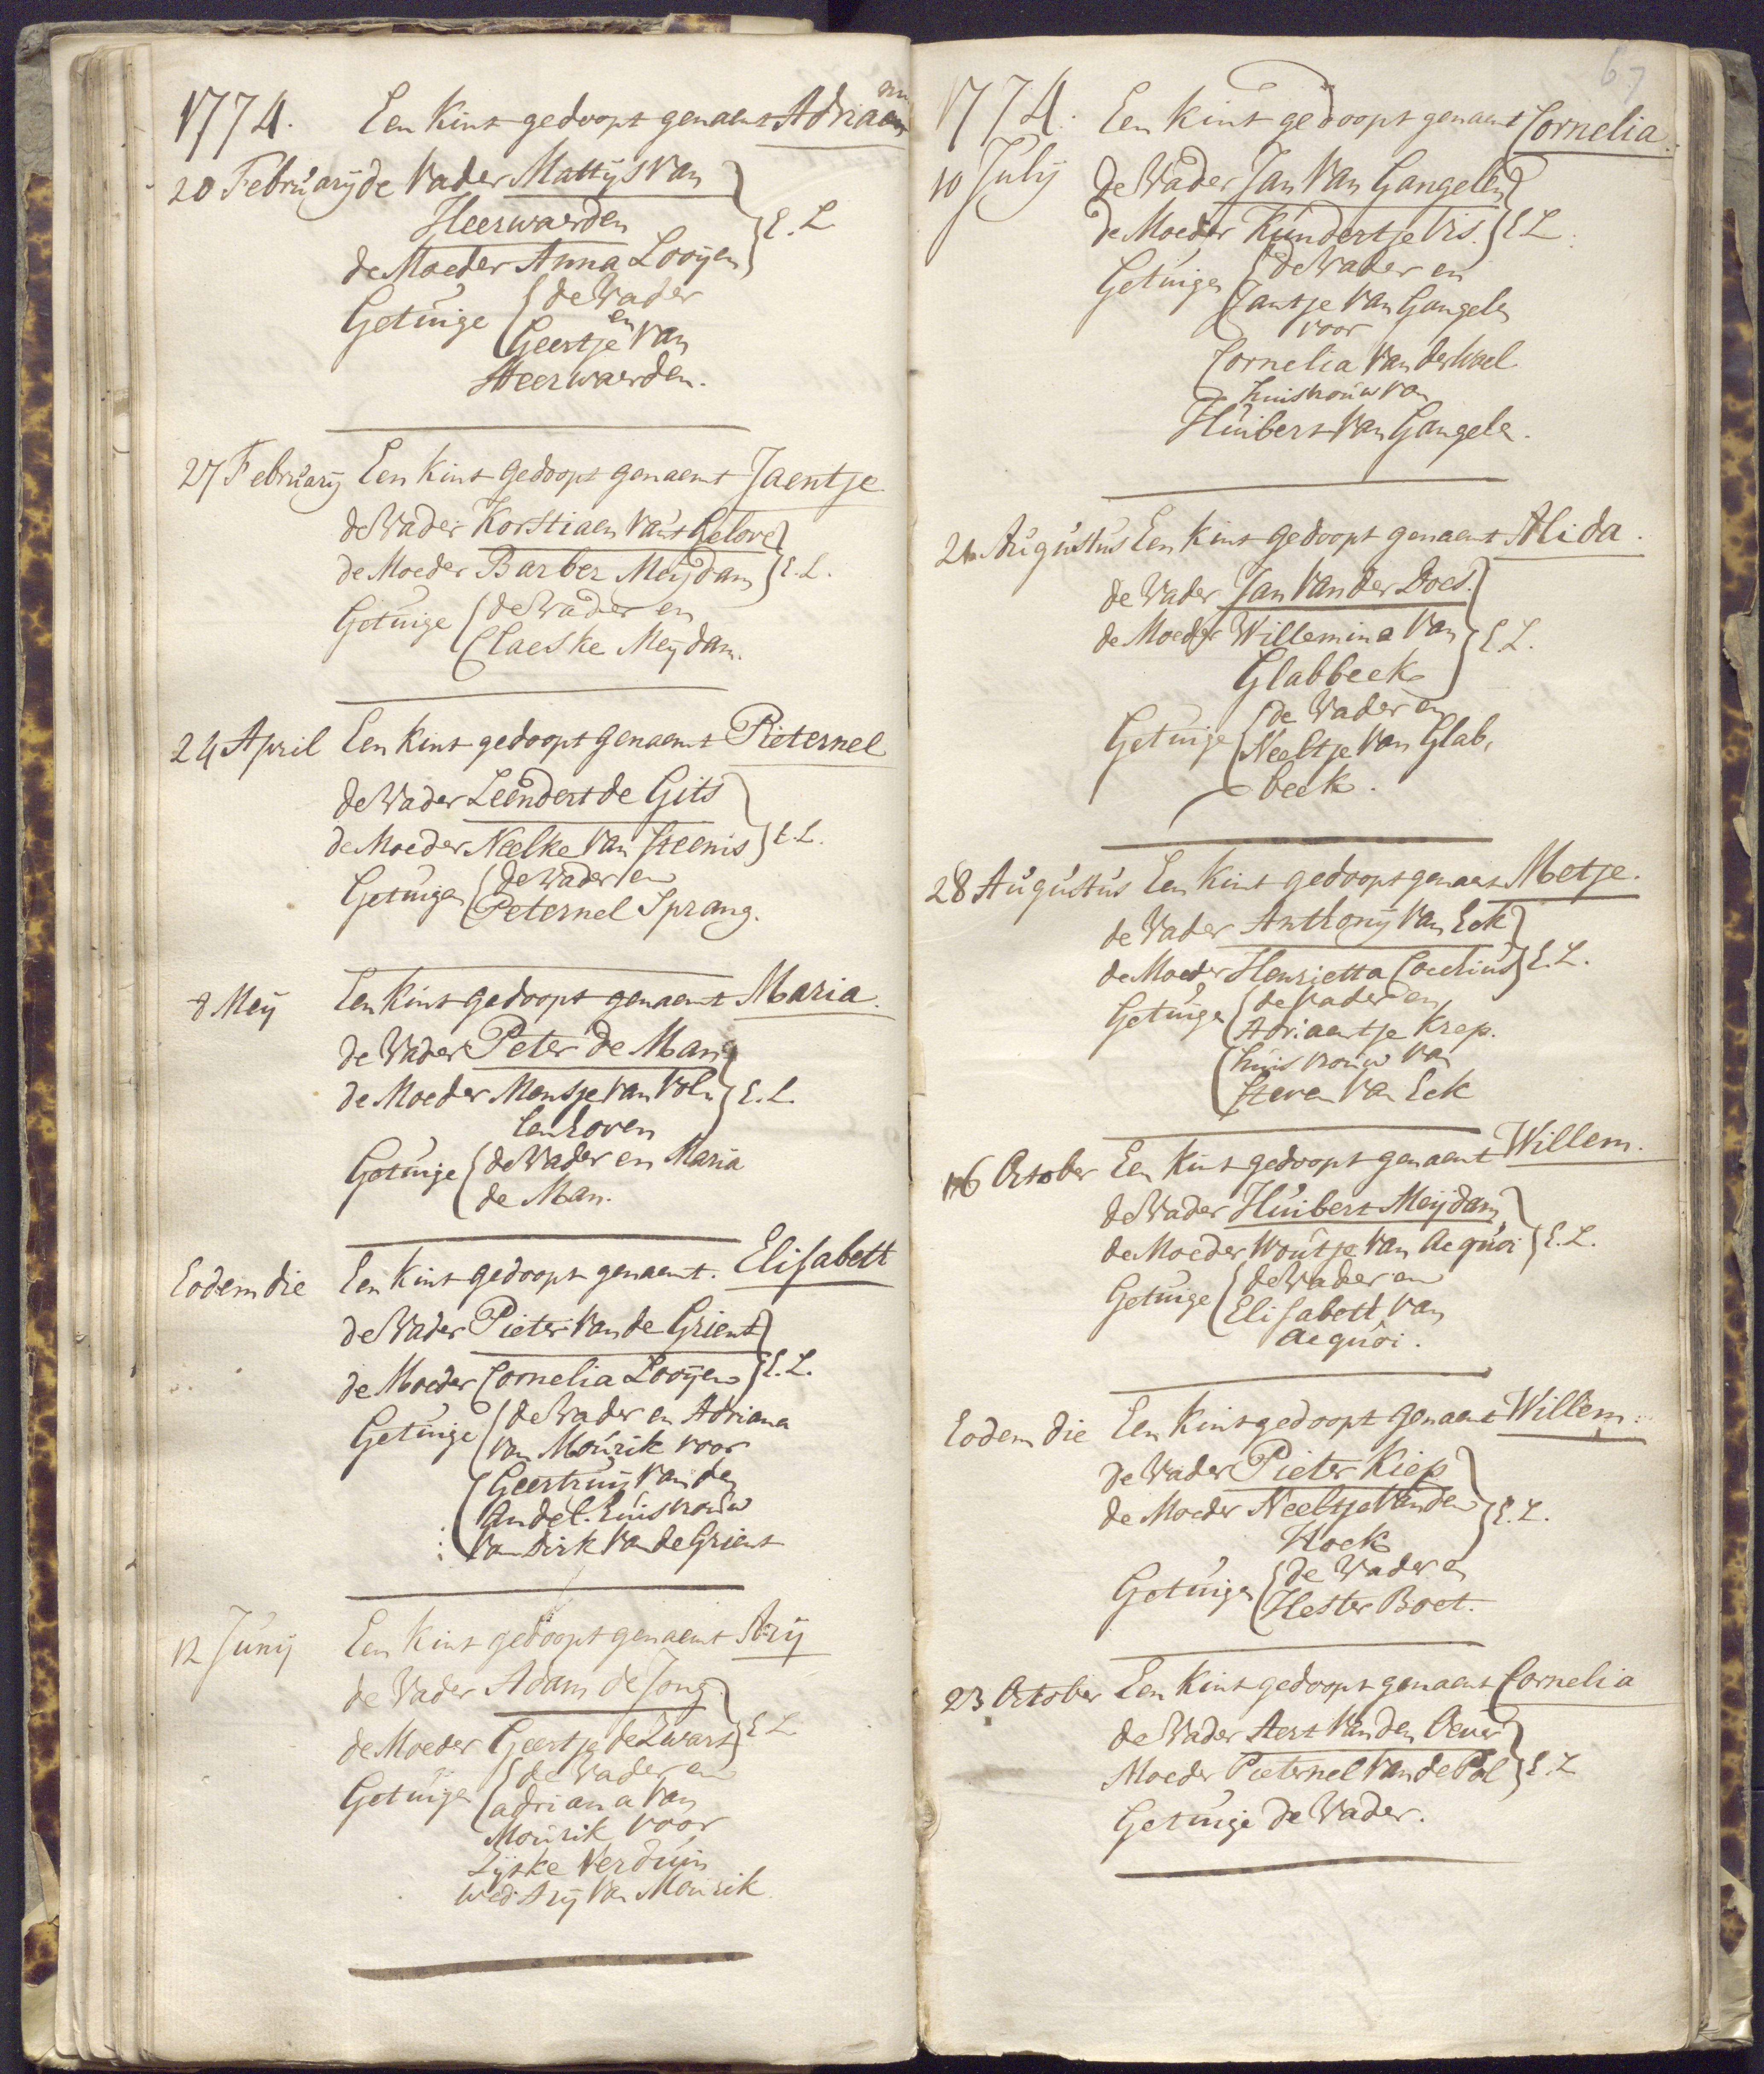 1774. Een Kint gedoopt genaemt Adriaan
20 February de Vader Mattys Van
Heerwaerden
de Moeder Anna Looyen } E. L
Getuige { de Vader
en
Geertje Van
Heerwaerden.
27 February Een Kint gedoopt genaemt Jaentje
de Vader Korstiaen Van't Gelove
de Moeder Barber Meydam } E. L.
Getuige { de Vader en
Claeske Meydam.
24 April Een Kint gedoopt genaemt Pieternel
de Vader Leendert de Gits
de Moeder Neelke Van Steenis } E. L.
Getuigen { de Vader en
Peternel Sprang.
8 Mey Een Kint gedoopt genaemt Maria.
de Vader Peter de Man
de Moeder Mentje Van Vol- } E. L.
lenhoven
Getuige { de Vader en Maria
de Man.
Eodem die Een Kint gedoopt genaemt. Elisabeth
de Vader Pieter Van de Grient
de Moeder Cornelia Looyen } E. L.
Getuige { de Vader en Adriana
van Mourik voor
Geertruy Van den
Andel. huisvrouw
Van Dirk Van de Grient
12 Juny Een Kint gedoopt genaemt Ary
de Vader Adam de Jong
de Moeder Geertje de Zwart } E L
Getuige { de Vader en
adriana Van
Mourik voor
Lyske Verduin
wed. Ary Van Mourik
67
1774. Een Kint gedoopt genaemt Cornelia.
10 July de Vader Jan Van Gangelen
de Moeder Kundertje Vis. } E L.
Getuigen { de Vader en
Jantje Van Gangelen
voor
Cornelia Van der Wael
huisvrouw van
Huibert Van Gangele.
21 Augustus Een Kint gedoopt genaemt Alida.
de Vader Jan Van der Does.
de Moeder Willemina Van } E. L.
Glabbeek
Getuige { de Vader en
Neeltje Van Glab,
beek.
28 Augustus Een Kint gedoopt genaemt Metje.
de Vader Anthony Van Eck
de Moeder Henrietta Coedius } E. L.
Getuige { de Vader en
Adriaentje Krep.
huisvrouw van
Steven Van Eck
16 October Een Kint gedoopt genaemt Willem.
de Vader Huibert Meydam
de Moeder Woutje Van Acquoi } E. L.
Getuige { de Vader en
Elisabeth Van
Acquoi.
Eodem die Een Kint gedoopt genaemt Willem.
de Vader Pieter Kiep
de Moeder Neeltje Van den } E. L.
Hoek
Getuigen { de Vader en
Hester Boet.
23 October Een Kint gedoopt genaemt Cornelia
de Vader Aert Van den Oever
Moeder Pieternel Van de Pol } E. L
Getuige de Vader.